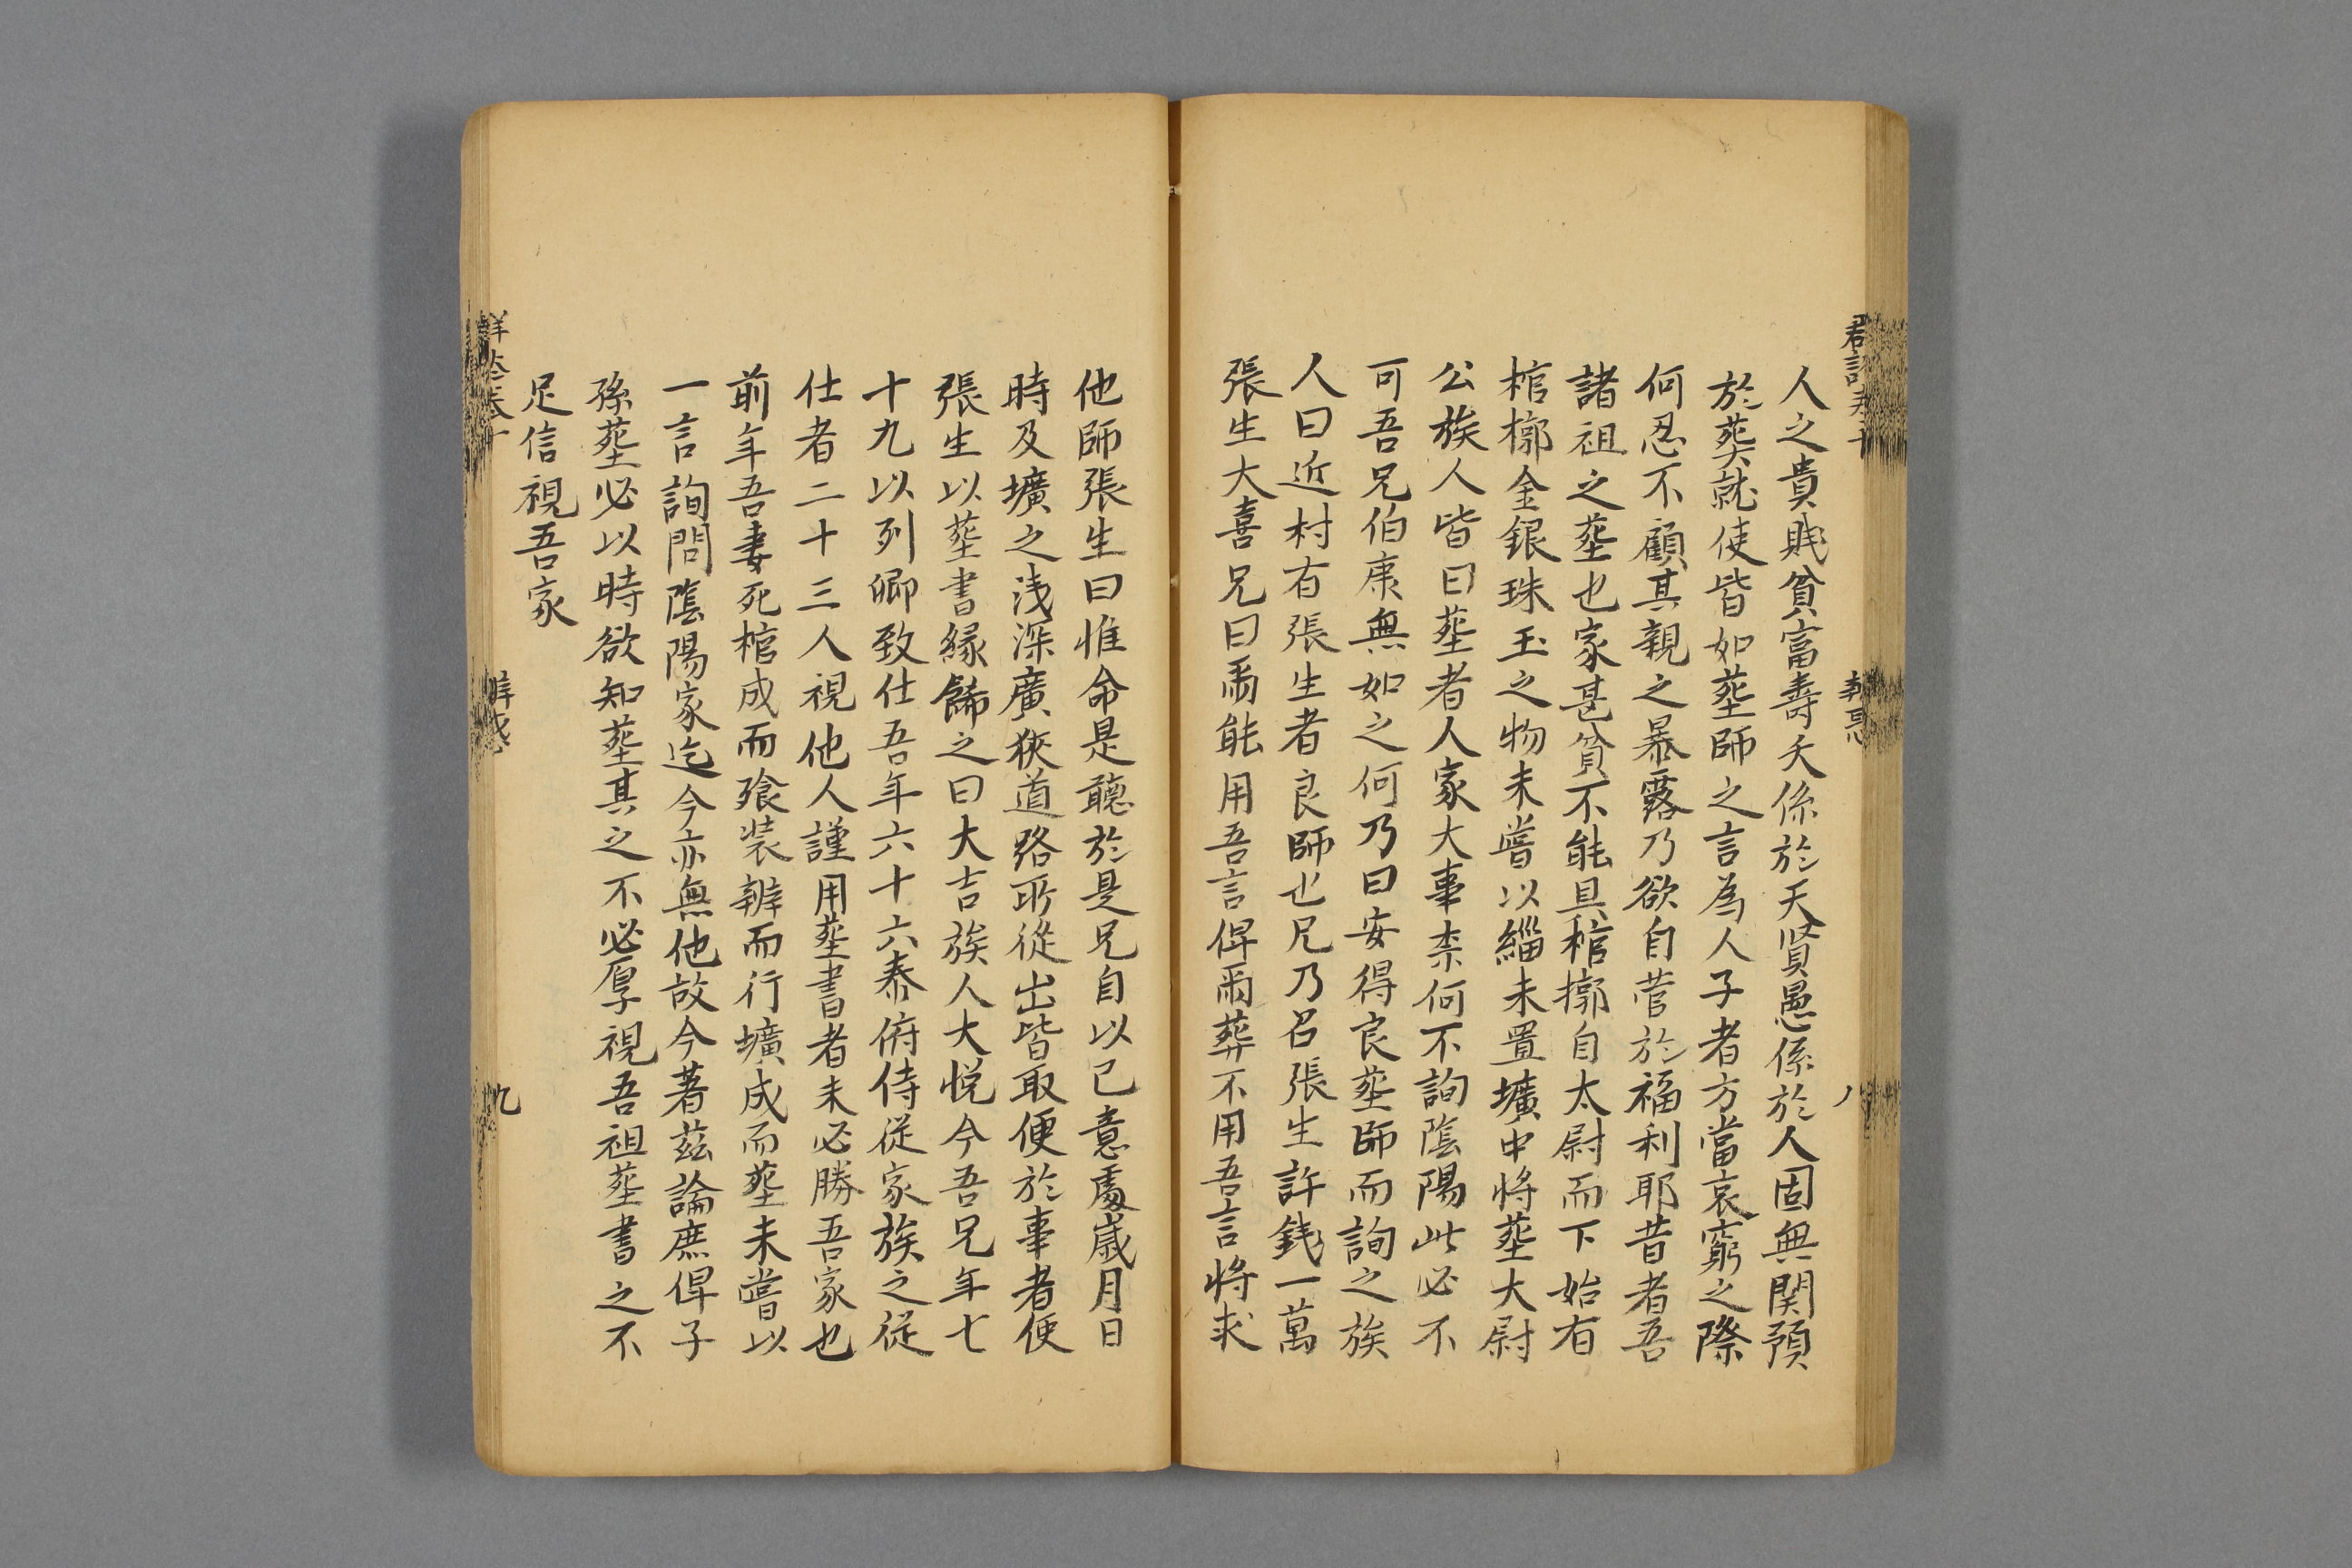 人之貴賎貧富壽夭係於天賢愚係於人固無関預
於葬就使皆如塟師之言為人子者方當哀窮之際
何忍不顧其親之暴露乃欲自营於福利耶昔者吾
諸祖之塟也家甚貧不能具棺槨自太尉而下始有
棺槨金銀珠玉之物未嘗以錙未置壙中将塟大尉
公族人皆曰塟者人家大事柰何不詢隂陽此必不
可吾兄伯康無如之何乃曰安得良塟師而詢之族
人曰近村有張生者良師也兄乃召張生許銭一萬
張生大喜兄曰爾能用吾言俾爾葬不用吾言将求
他師張生曰惟命是聽於是兄自以己意處嵗月日
時及壙之浅深廣狹道路所從出皆取便於事者使
張生以塟書縁餙之曰大吉族人大悦今吾兄年七
十九以列卿致仕吾年六十六忝俯侍従家族之従
仕者二十三人視他人謹用塟書者未必勝吾家也
前年吾妻死棺成而飱装辦而行壙成而塟未嘗以
一言詢問隂陽家迄今亦無他故今著茲論庶俾子
孫塟必以時欲知塟其之不必厚視吾祖塟書之不
足信視吾家
八
九